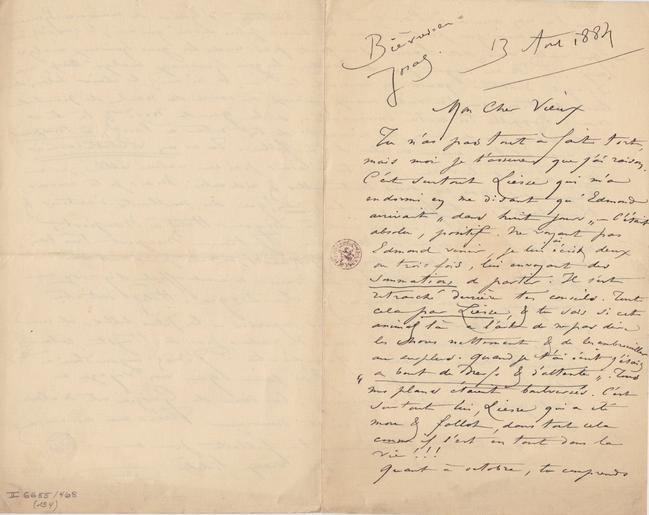 Bièvres en
Josas.
13 Aout 1884
Mon Cher Vieux
Tu n'as pas tout à fait tort,
mais moi je t'assure que j'ai raison.
C'est surtout Liesse qui m'a
endormi en me disant qu'Edmond
arrivait „ dans huit jours „ – c'était
absolu, positif. Ne voyant pas
Edmond venir, je lui ai écrit deux
ou trois fois, lui envoyant des
sommations de partir. Il s'est
retranché derrière tes conseils. Tout
cela par Liesse, & tu sais si cet
animal là a l'art de ne pas dire
les choses nettement & de les embrouiller
au surplus. Quand je t'ai écrit j'étais
„ à bout de & d'attente „. Tous
mes plans étaient bouleversés. C'est
surtout lui, Liesse, qui a été
mou & follot, dans tout cela
comme il s'est en tout dans la
vie !!!
Quant à octobre, tu comprends
II 6655/468
(134)